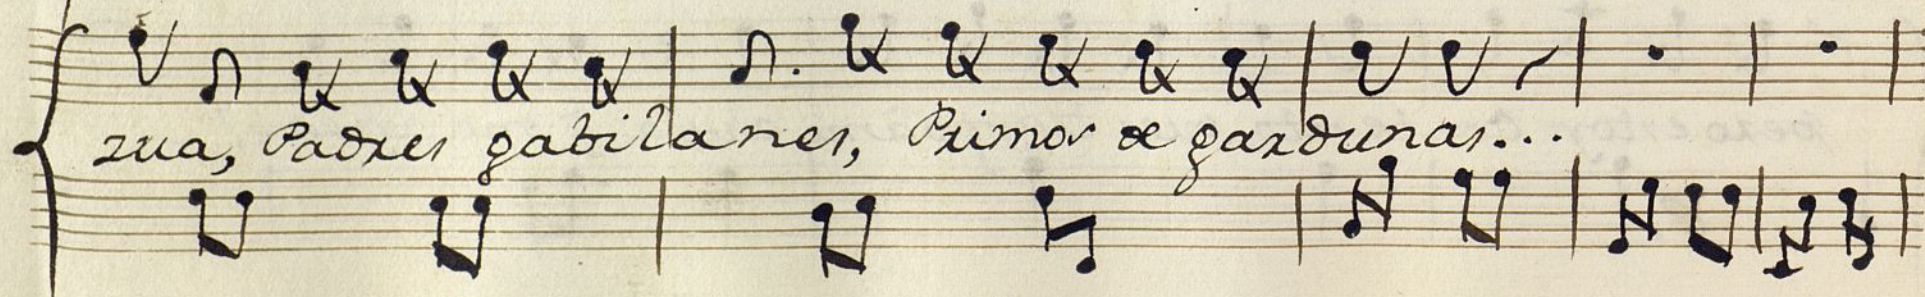 zua, Padres gabilanes, Primos de gardunas...